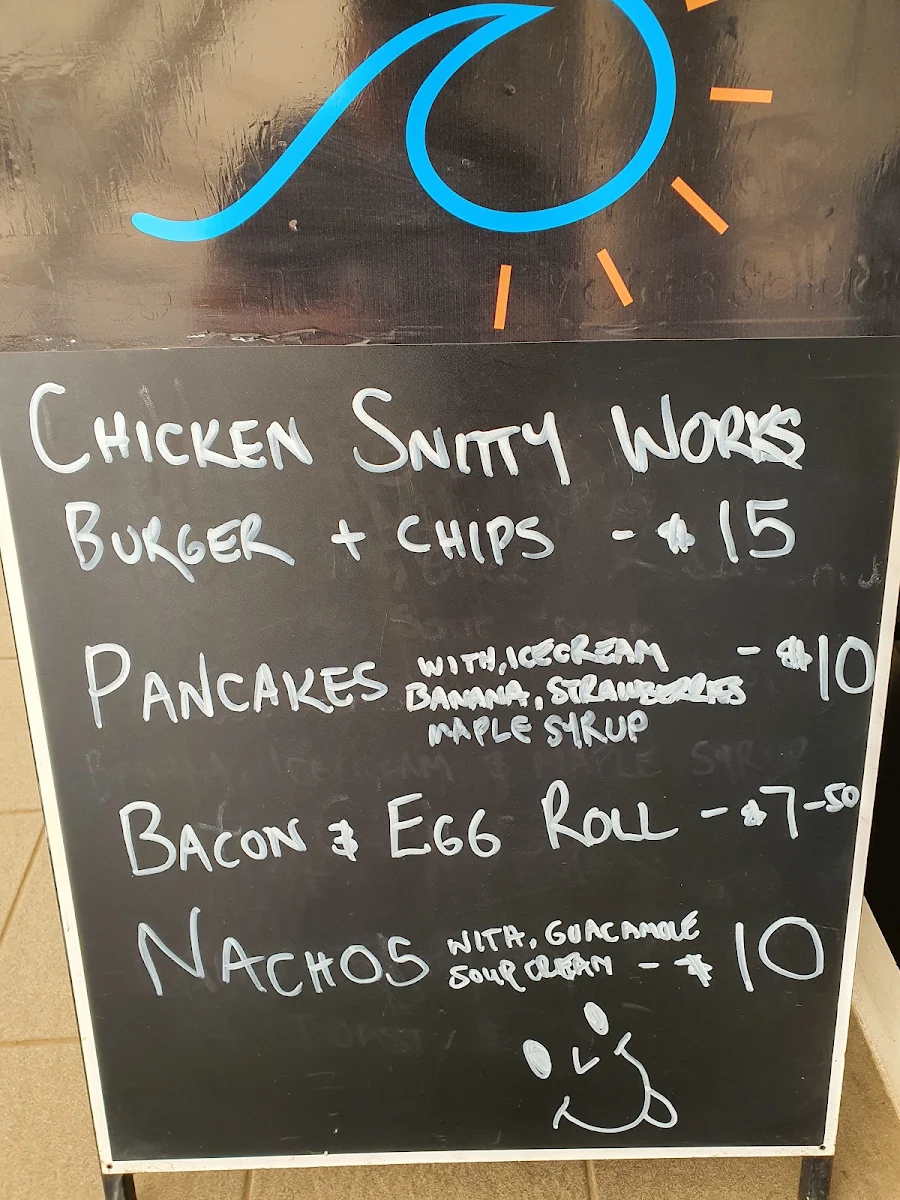 CHICKEN SNITTY WORKS
BURGER + CHIPS - $15
PANCAKES WITH, ICECREAM - $10
BANANA, STRAWBERRIES
MAPLE SYRUP
BACON & EGG ROLL - $7-50
NACHOS WITH, GUACAMOLE
SOUP CREAM - $10